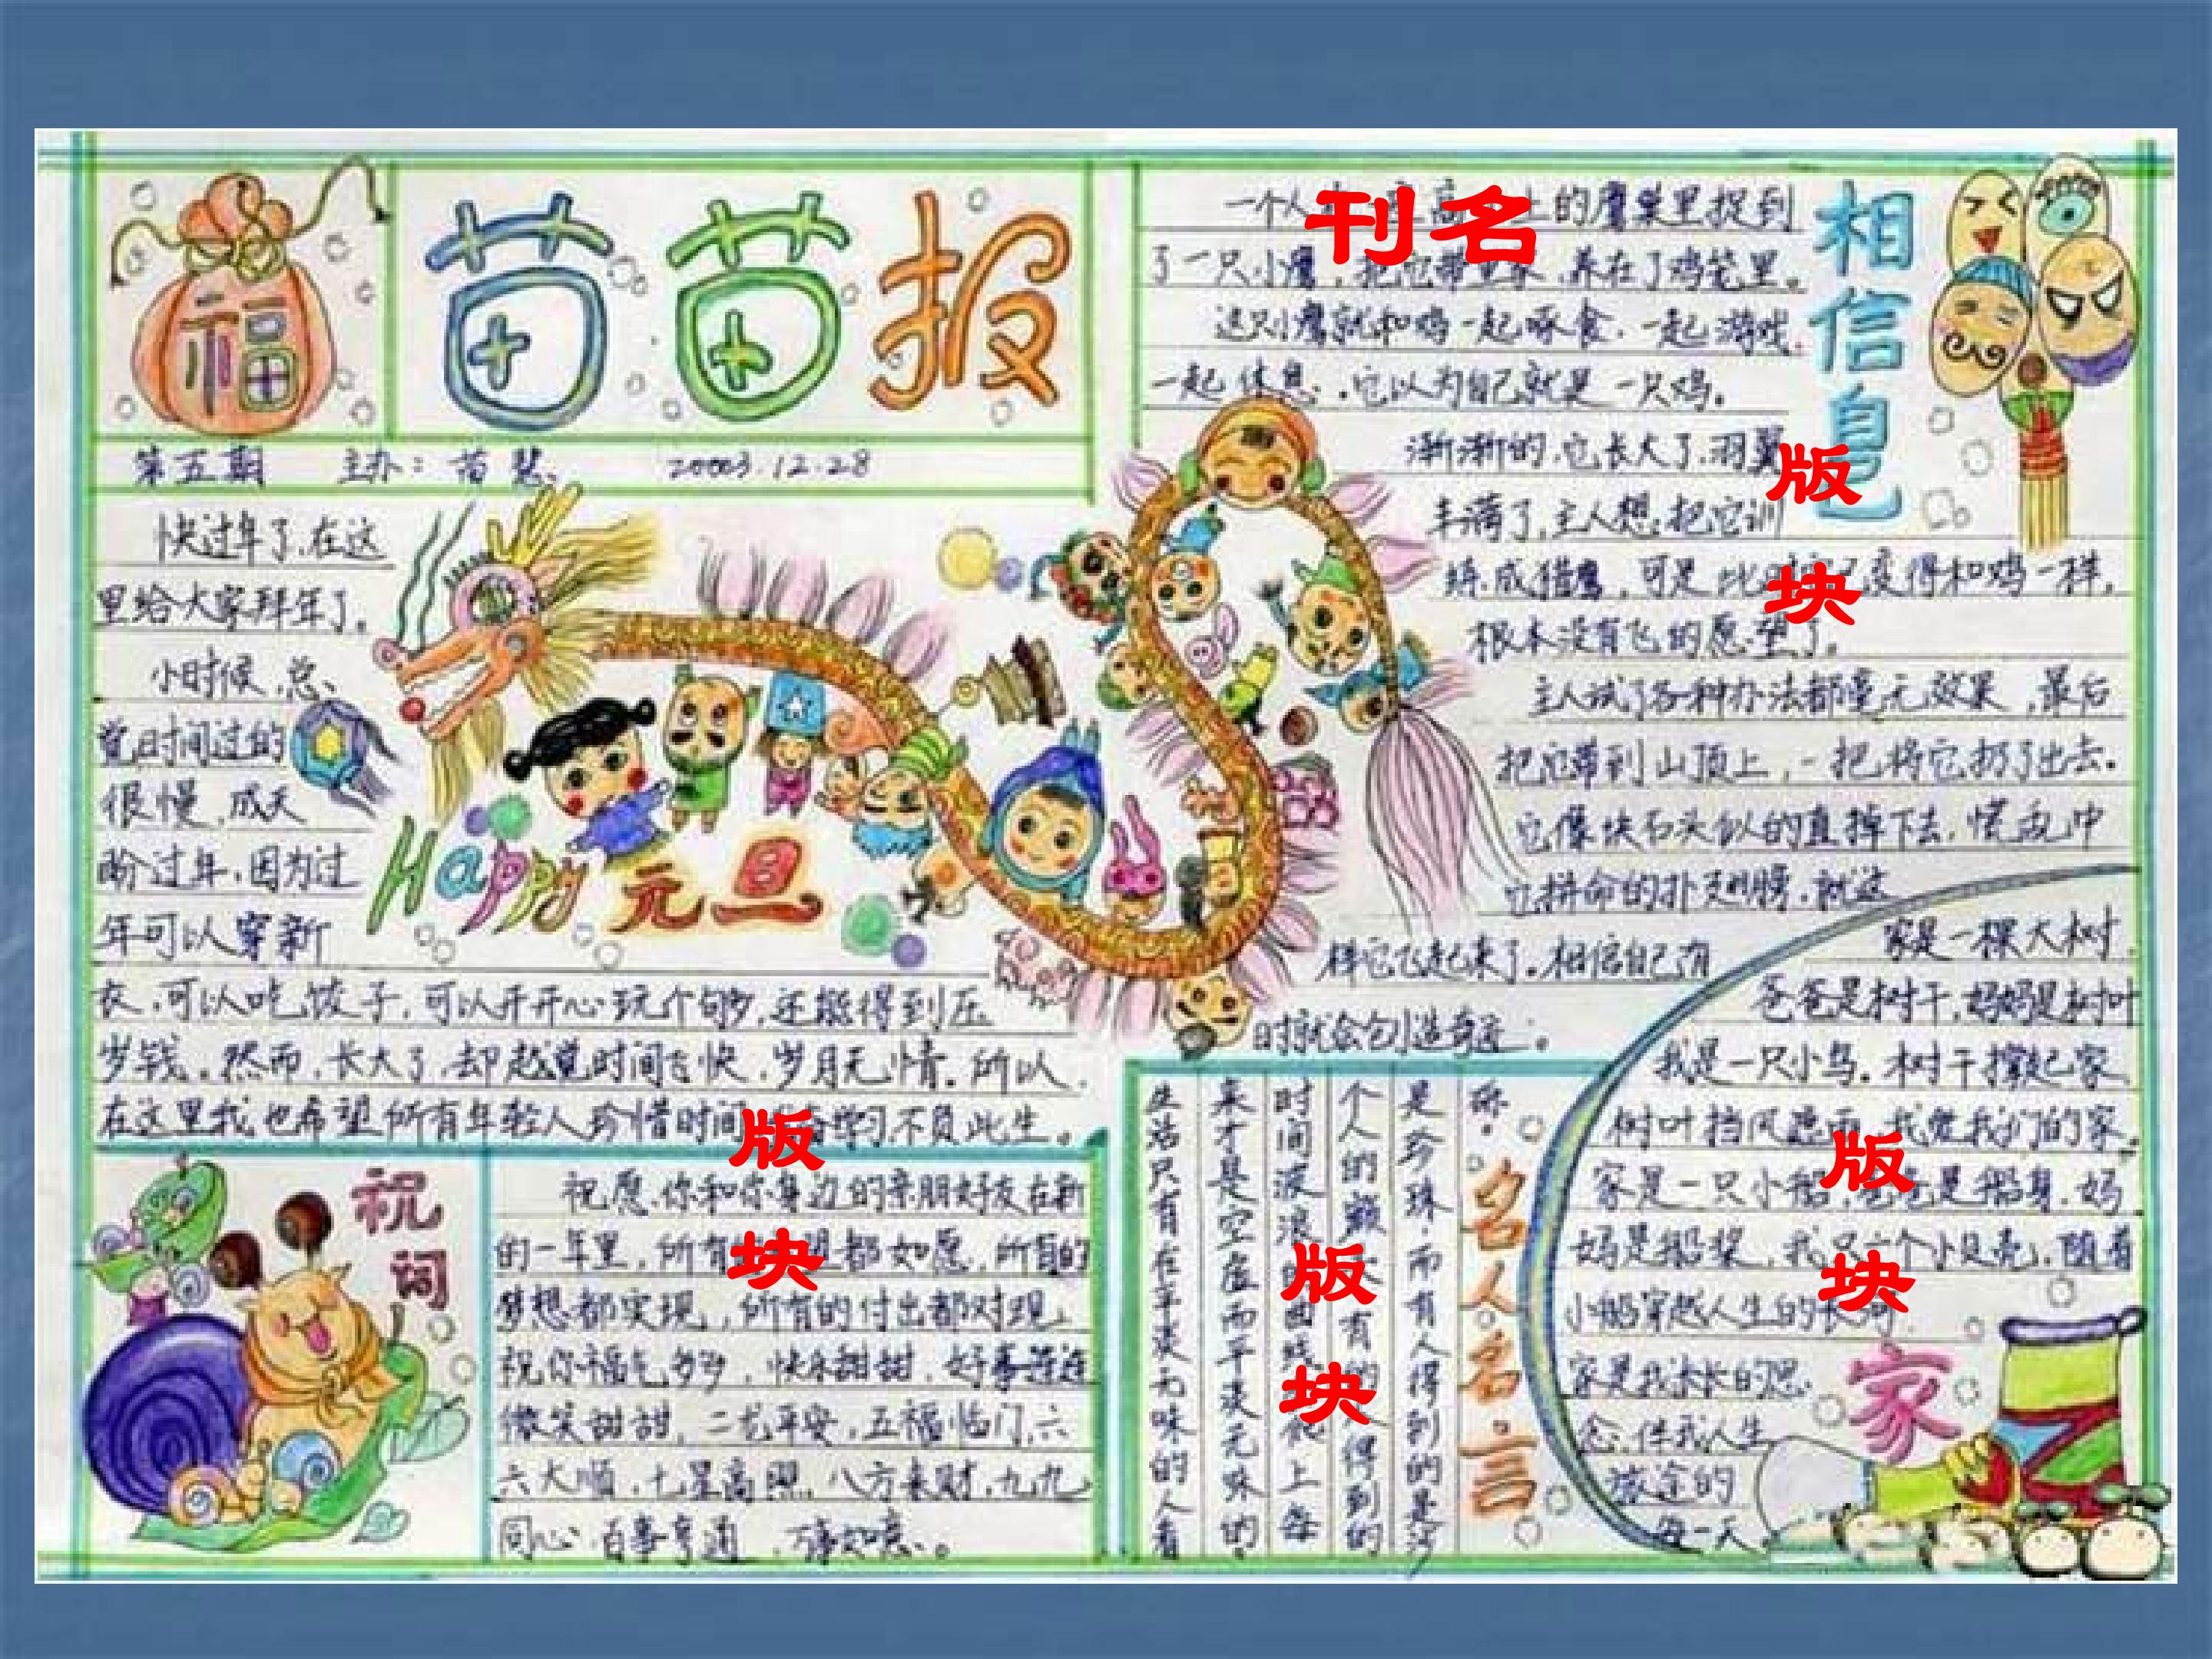 福
苗苗报
第五期 主办：苗慧 20003.12.28
快过年了,在这
里给大家拜年了。
小时候,总
觉时间过的
很慢,成天
盼过年,因为过
年可以穿新
衣,可以吃饺子,可以开开心玩个够,还能得到压
岁钱。然而,长大了,却越觉时间飞快,岁月无情。所以
在这里我也希望所有年轻人珍惜时间 学习,不负此生。
Happy 元旦
祝词
祝愿你和你身边的亲朋好友在新
的一年里,所有 都如愿,所有的
梦想都实现,所有的付出都对现
祝你福气多多,快乐甜甜,好事连连
微笑甜甜,二龙平安,五福临门,六
六大顺,七星高照,八方来财,九九
同心,百事亨通,万事如意。
刊名
一个人 高 上的鹰巢里捉到
了一只小鹰,把它带回家,养在了鸡笼里。
这只小鹰就和鸡一起啄食,一起游戏,
一起休息。它以为自己就是一只鸡。
渐渐的,它长大了,羽翼
丰满了,主人想把它训
练成猎鹰,可是 变得和鸡一样,
根本没有飞的愿望了。
主人试了各种办法都毫无效果,最后
把它带到山顶上,一把将它扔了出去。
它像块石头似的直掉下去,慌乱中
它拼命的扑 翅膀,就这
样它飞起来了。相信自己有
时就会创造奇迹。
相信自己
版块
版块
版块
版块
名人名言
生活只有在平淡无味的人看
来才是空虚而平淡无味的。
时间 浪 曲线 上每
个人的 有的 得到的
是珍珠,而有人得到的是沙
砾。
家
家是一棵大树,
爸爸是树干,妈妈是树叶
我是一只小鸟。树干撑起家
树叶挡风遮雨,我爱我们的家。
家是一只小船,爸爸是船身,妈
妈是船桨,我 个小贝壳,随着
小船穿越人生的长河
家是我长长的思
念,伴我人生
旅途的
每一天